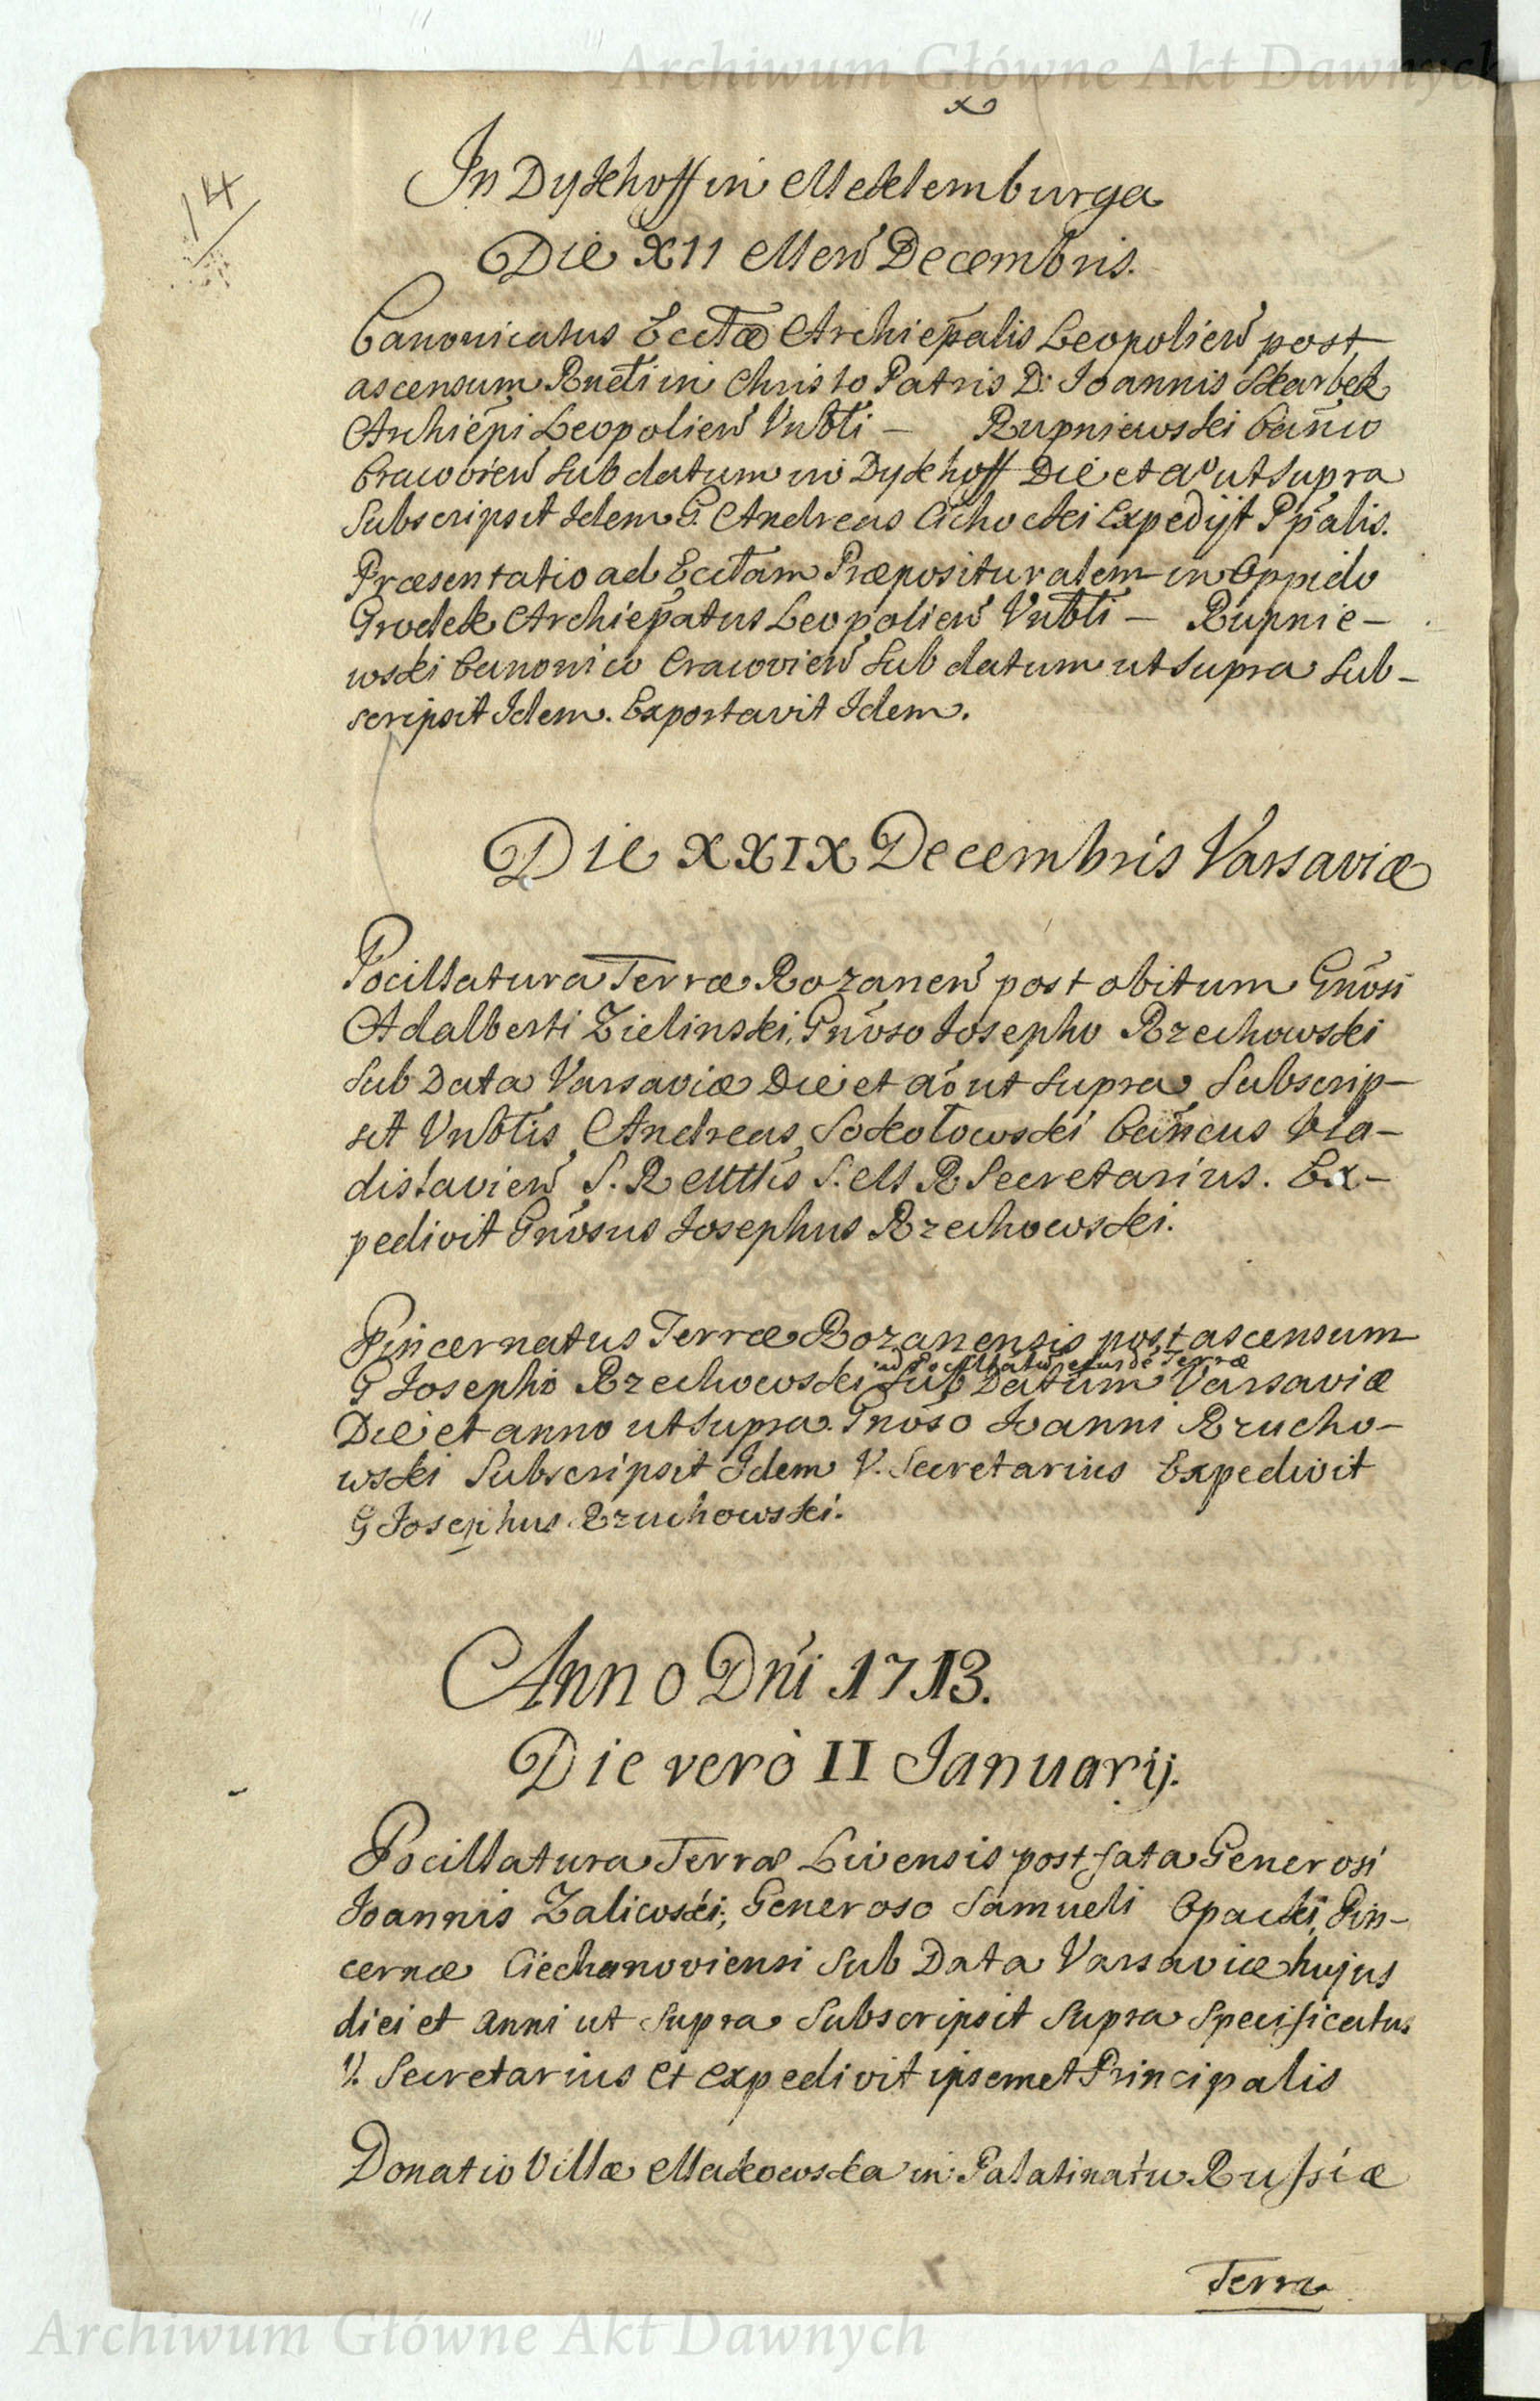 Archiwum Główne Akt Dawnych
14
In Dykhoff in Meklemburga
Die XII Men̄ Decembris.
Canonicatus Eccłæ Archiep̄alis Leopolien̄ post
ascensum Rn̄dti in Christo Patris D: Joannis Skarbek
Archiep̄i Leopolien̄ Vnbłi — Rupniewski Can̄co
Cracovien̄ sub datum in Dykhoff Die et aō ut supra
Subscripsit Idem G. Andreas Cichocki Expedijt Pp̄alis.
Præsentatio ad Eccłam Præposituralem in Oppido
Grodek Archiep̄atus Leopolien̄ Vnbłi — Rupnie-
wski Canonico Cracovien̄ sub datum ut supra sub-
scripsit Idem. Exportavit Idem.
Die XXIX Decembris Varsaviæ
Pocillatura Terræ Rozanen̄ post obitum Gn̄osi
Adalberti Zielinski, Gn̄oso Josepho Rzechowski
sub Data Varsaviæ Die et aō ut supra Subscrip-
sit Vnbłis Andreas Sokołowski Can̄cus Vla-
dislavien̄ S. R Mttis S. M R Secretarius. Ex-
pedivit Gn̄osus Josephus Rzechowski.
Pincernatus Terræ Rozanensis post ascensum
ad Pocillatur̄ ejusdē Terræ
G Josephi Rzechowski sub Datum Varsaviæ
Die et anno ut supra. Gn̄oso Joanni Rzucho-
wski Subscripsit Idem V. Secretarius Expedivit
G Josephus Rzuchowski.
Anno Dn̄i 1713.
Die verò II Januarij.
Pocillatura Terræ Livensis post fata Generosi
Joannis Zaliwski; Generoso Samueli Opacki, Pin-
cernæ Ciechanoviensi sub Data Varsaviæ hujus
diei et anni ut supra Subscripsit supra specificatus
V. Secretarius et expedivit ipsemet Principalis
Donatio Villæ Makowska in Palatinatu Russiæ
Terra
Archiwum Główne Akt Dawnych